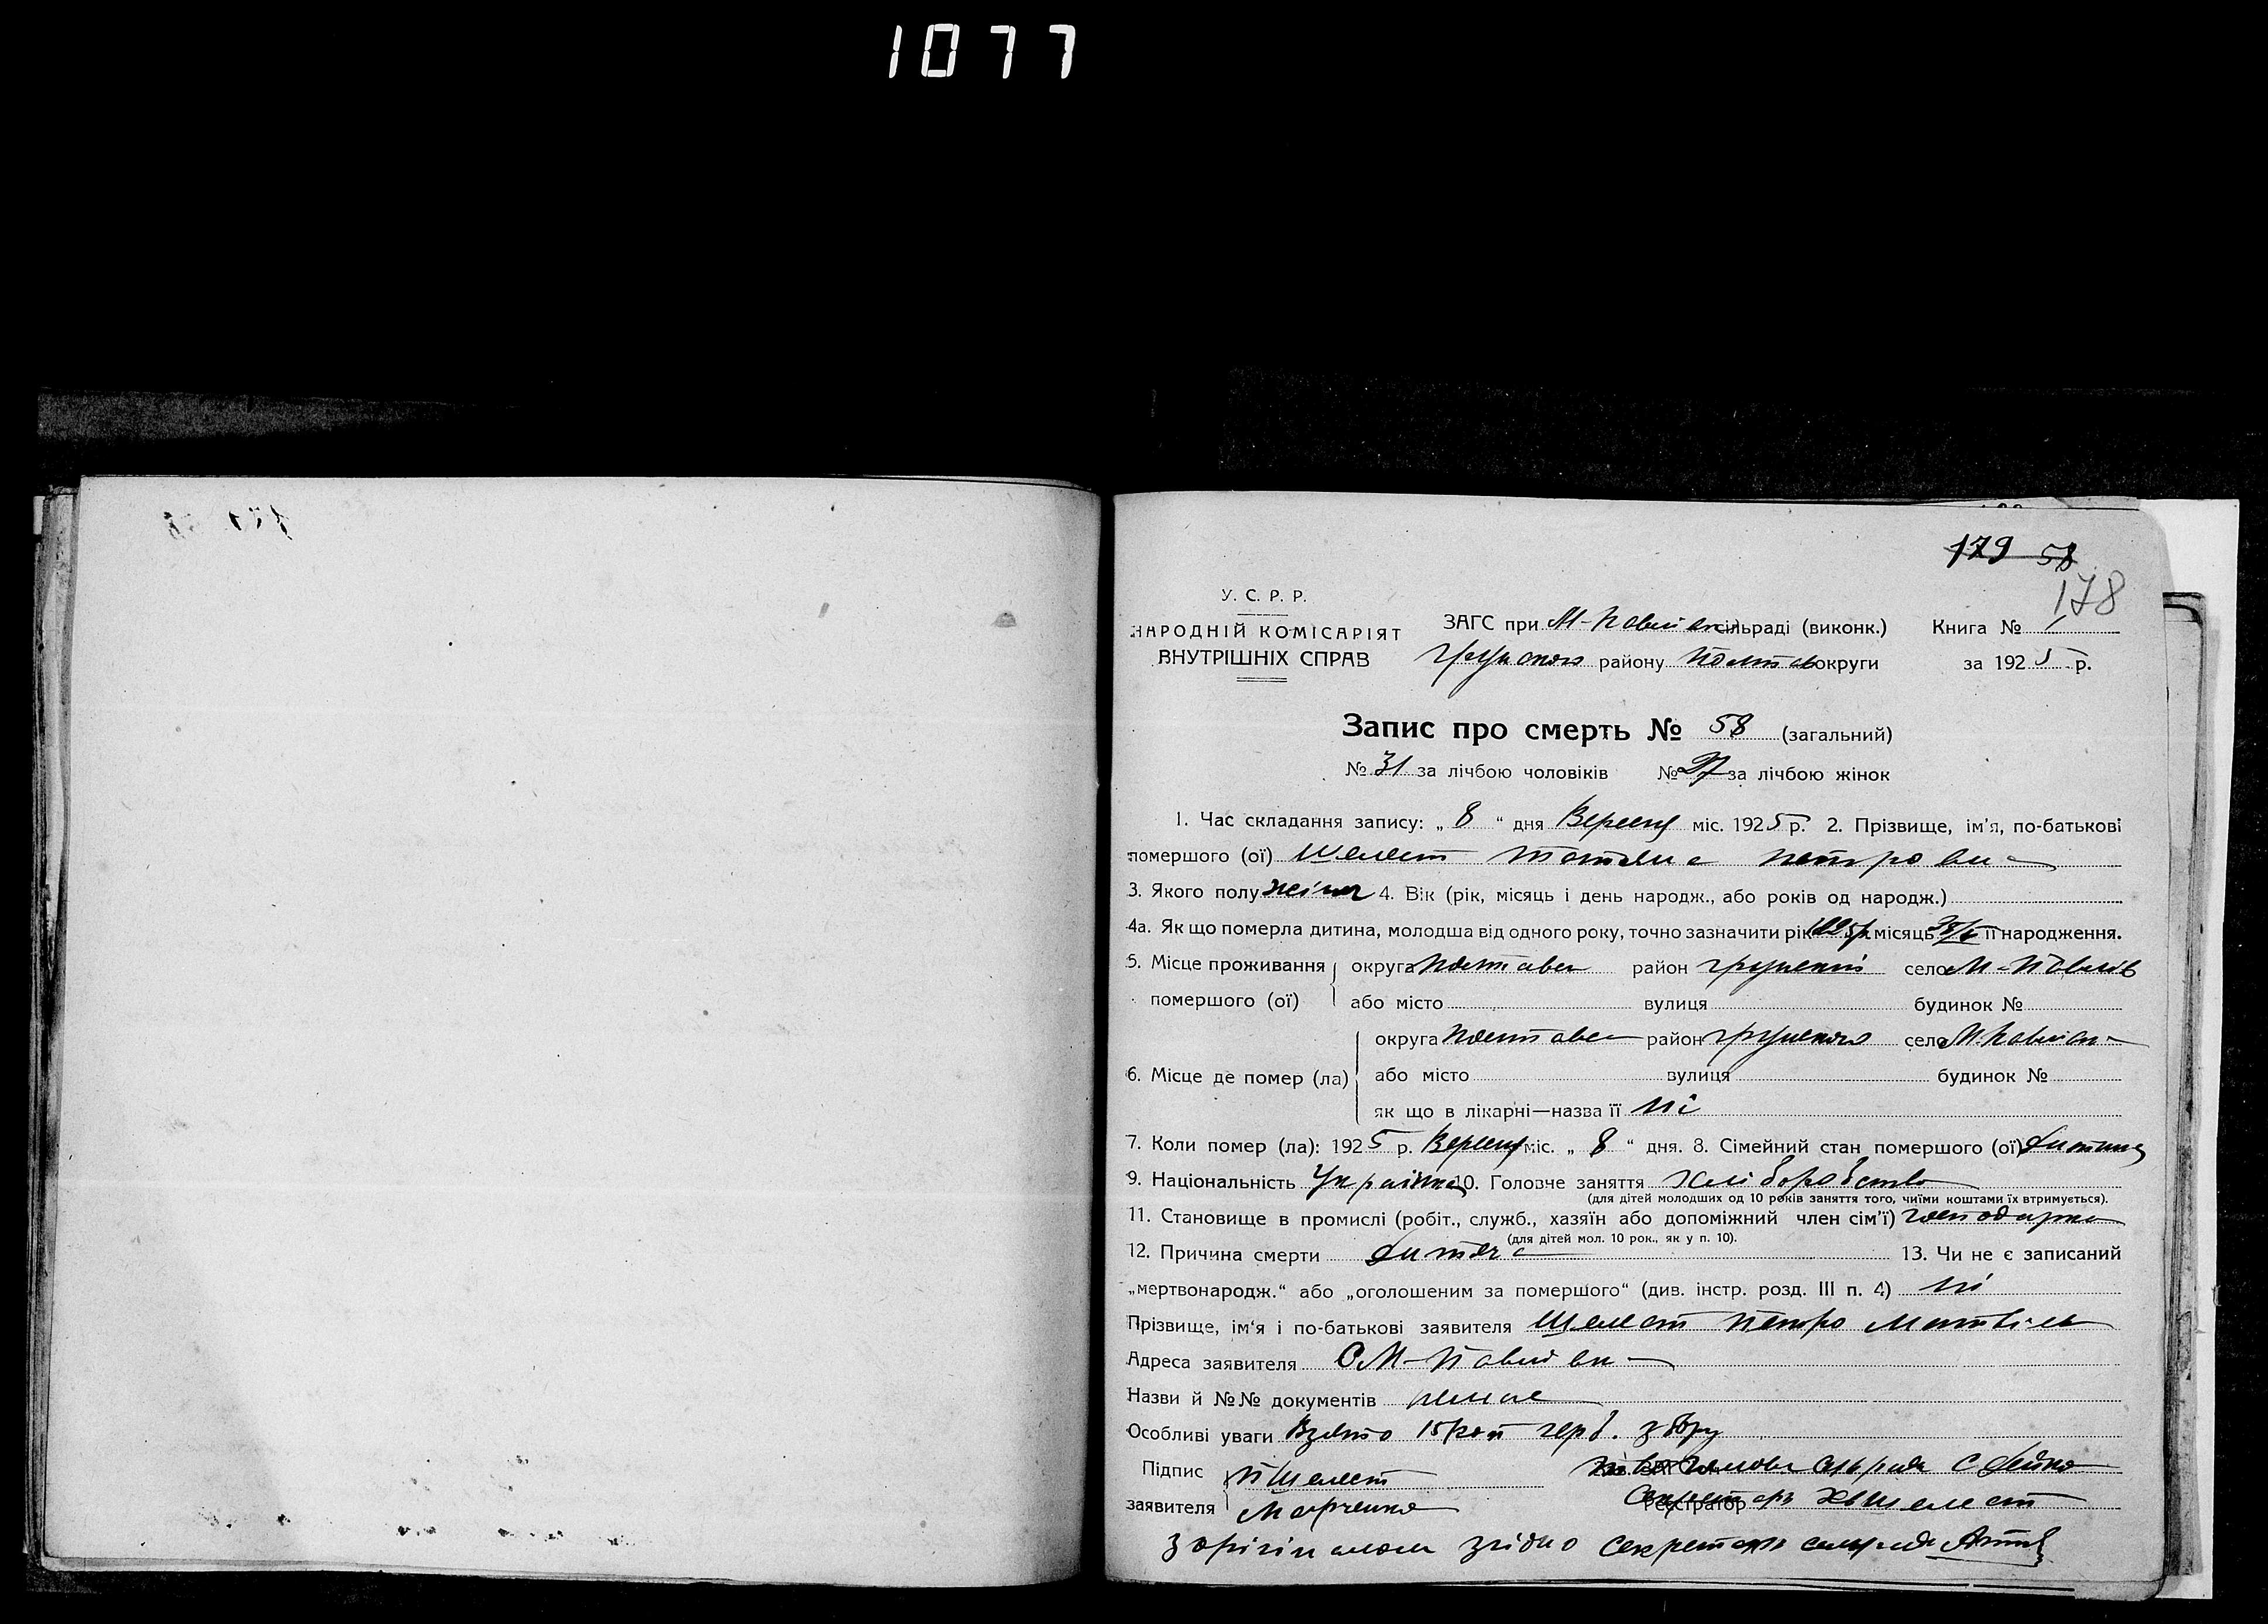 1077
179 58
178
У. С. Р. Р.
НАРОДНІЙ КОМІСАРІЯТ
ВНУТРІШНІХ СПРАВ
ЗАГС при М-Павлівск сільраді (виконк.) Книга № 1
району Полтав округи за 1925 р.
Запис про смерть № 58 (загальний)
№ 31 за лічбою чоловіків № 27 за лічбою жінок
1. Час складання запису: „ 8 “ дня Вересня міс. 1925 р. 2. Прізвище, ім'я, по-батькові
помершого (ої) Шелест Тотяна Петровна
3. Якого полу жіноч 4. Вік (рік, місяць і день народж., або років од народж.)
4а. Як що померла дитина, молодша від одного року, точно зазначити рік 1925 р. місяць її народження.
5. Місце проживання округа Полтавск район село М-Павлів
помершого (ої) або місто вулиця будинок №
округа Полтавск район село М-Павлівка
6. Місце де помер (ла) або місто вулиця будинок №
як що в лікарні—назва її ні
7. Коли помер (ла): 1925 р. Вересня міс. „ 8 “ дня. 8. Сімейний стан помершого (ої) дитина
9. Національність Українка 10. Головче заняття хліборобство
(для дітей молодших од 10 років заняття того, чиїми коштами їх втримується).
11. Становище в промислі (робіт., служб., хазяїн або допоміжний член сім'ї)
(для дітей мол. 10 рок., як у п. 10).
12. Причина смерти дитяча 13. Чи не є записаний
„мертвонародж.“ або „оголошеним за помершого“ (див. інстр. розд. III п. 4) ні
Прізвище, ім'я і по-батькові заявителя Шелест Петро Матвієв
Адреса заявителя С М-Павлівка
Назви й №№ документів немае
Особливі уваги Взято 15 коп герб. збору
Підпис П Шелест Зав. ЗАГС'ом Голова сільради
заявителя Марченко Реєстратор Секретарь Шелест
З орігіналом згідно секретарь сельради